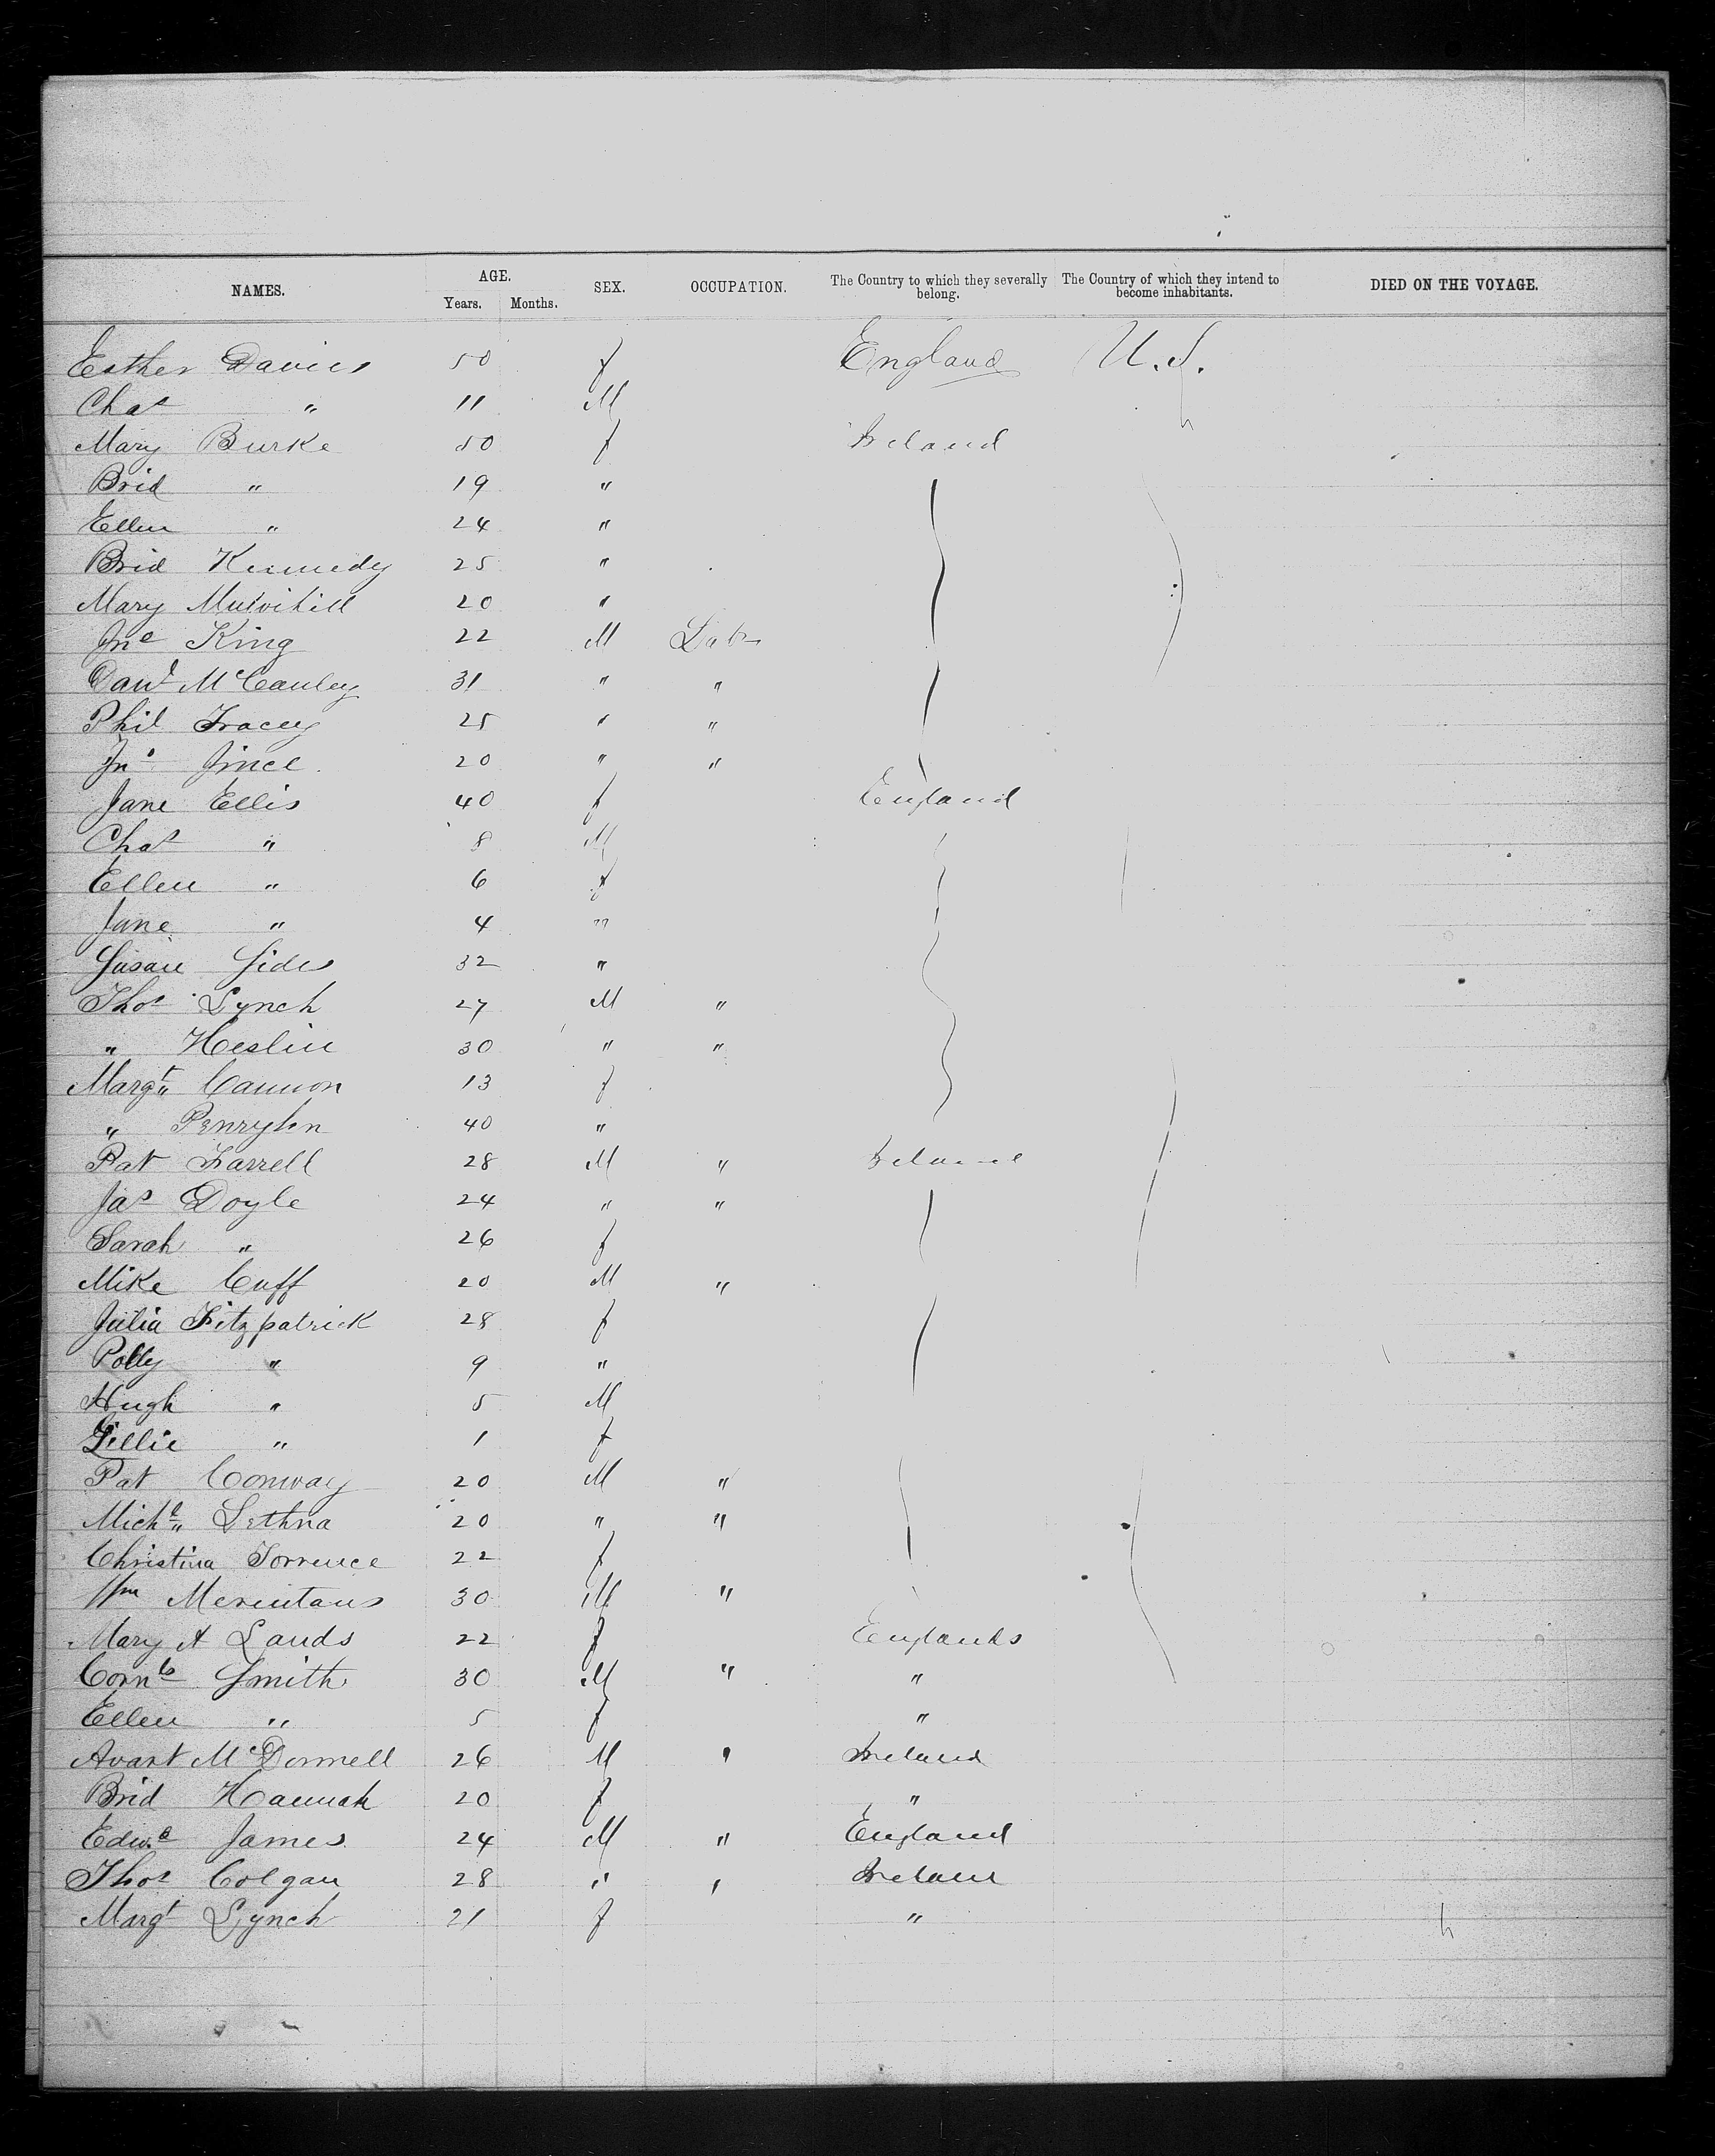 NAMES. AGE. SEX. OCCUPATION. The Country to which they severally belong. The Country of which they intend to become inhabitants. DIED ON THE VOYAGE.
Years. Months.
Esther Davies 50 f England U.S.
Chas " 11 M
Mary Burke 50 f Ireland
Brid " 19 "
Ellen " 24 "
Brid Kennedy 25 "
Mary Mulvihill 20 "
Jno King 22 M Labr
Danl McCauley 31 " "
Phil Tracey 25 " "
Jno 20 " "
Jane Ellis 40 f England
Chas " 8 M
Ellen " 6 f
Jane " 4 "
Susan Sides 32 "
Thos Lynch 27 M "
" Heslin 30 " "
Margt Cannon 13 f
" Penryhn 40 "
Pat Farrell 28 M " Ireland
Jas Doyle 24 " "
Sarah " 26 f
Mike Cuff 20 M "
Julia Fitzpatrick 28 f
Polly " 9 "
Hugh " 5 M
" 1 f
Pat Conway 20 M "
Michl Lethna 20 " "
Christina Torrence 22 f
Wm 30 M "
Mary A Lands 22 f England
Corns Smith 30 M " "
Ellen " 5 f "
McDonnell 26 M " Ireland
Brid Hannah 20 f "
Edwd James 24 M " England
Thos Colgan 28 " " Ireland
Margt Lynch 21 f "